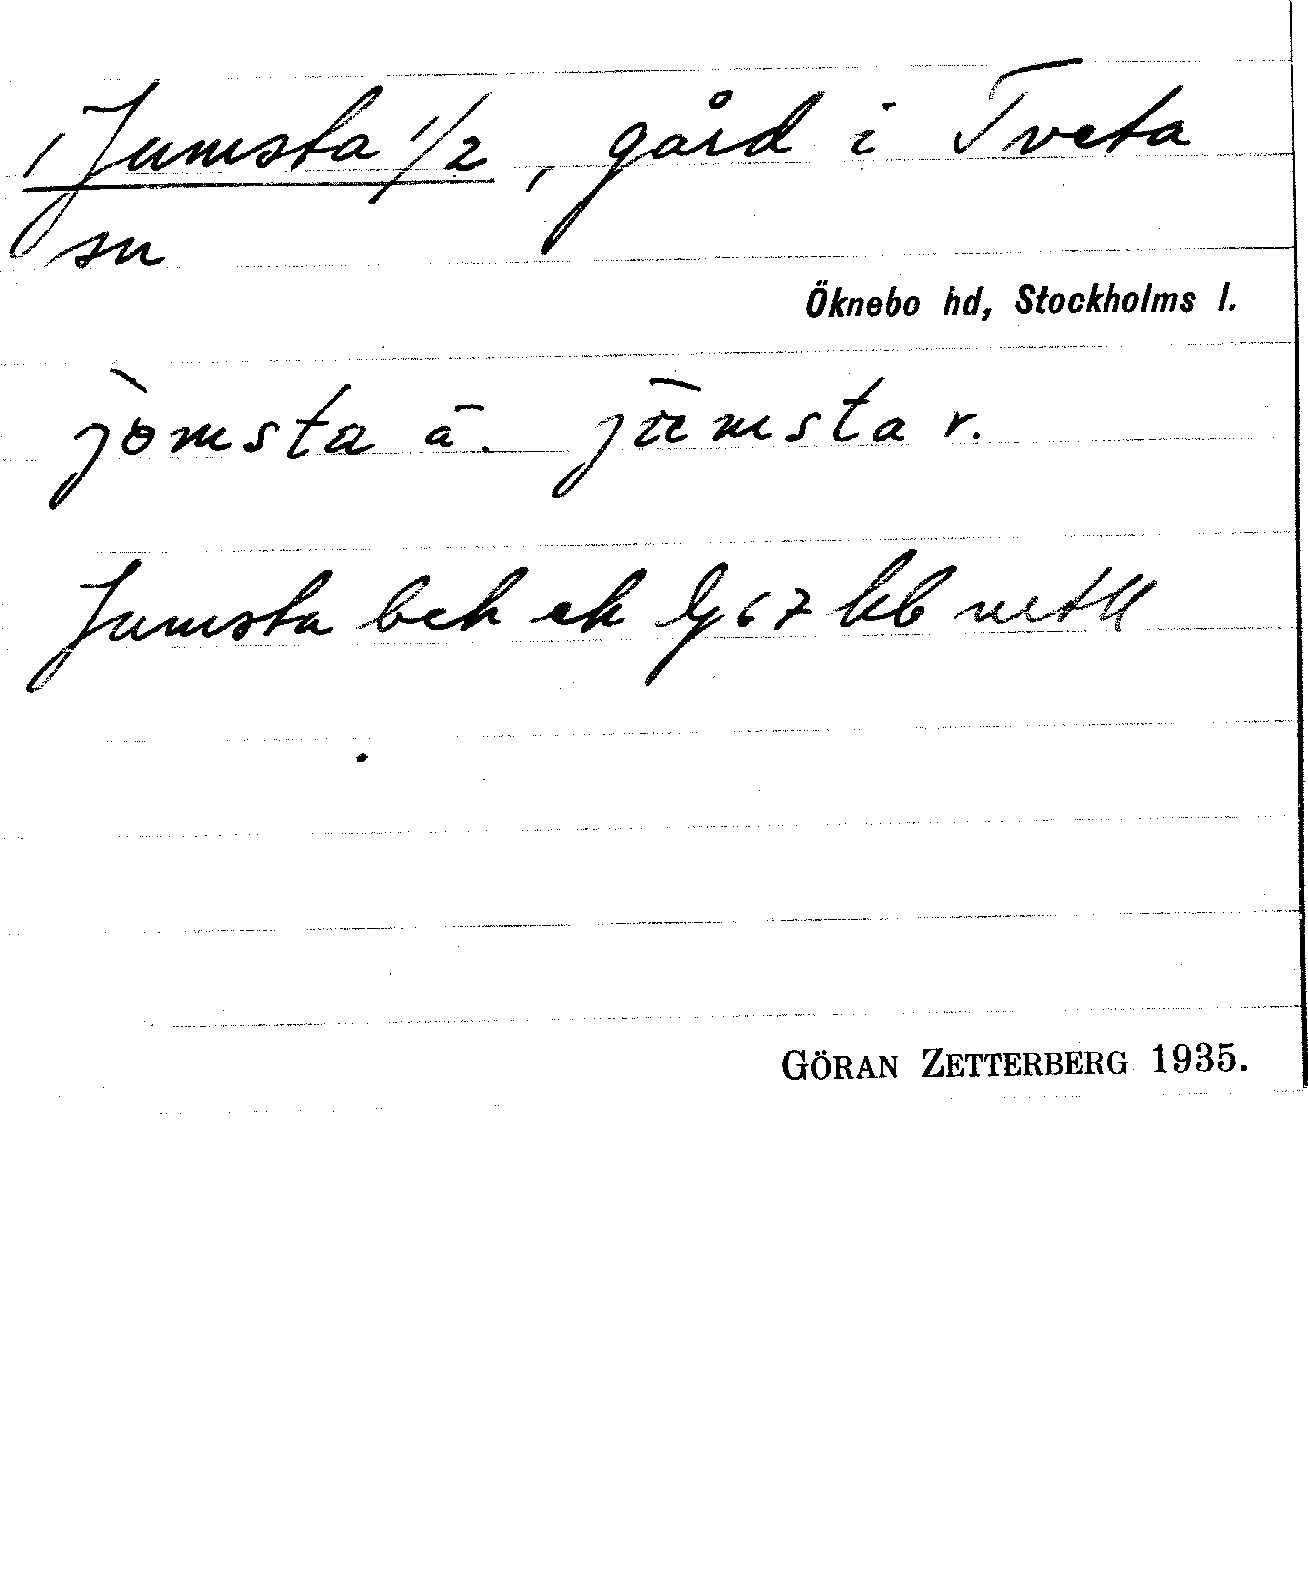 1 Jumsta 1/2, gård i Tveta
sn
Öknebo hd, Stockholms l.
jòmsta ä. jūmsta r.
Jumsta bek ek lj 67 kb
GÖRAN ZETTERBERG 1935.